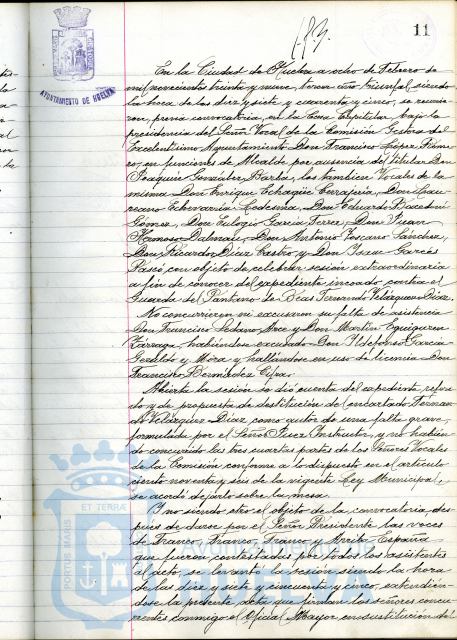 11
AYUNTAMIENTO DE HUELVA
En la Ciudad de Huelva a ocho de Febrero de
mil novecientos treinta y nueve tercer año triunfal siendo
la hora de las diez y siete y cuarenta y cinco, se reunie-
ron, previa convocatoria, en la Casa Capitular bajo la
presidencia del Señor Vocal de la Comisión Gestora del
Excelentísimo Ayuntamiento Don Francisco López Fiome-
ro, en funciones de Alcalde por ausencia del titular Don
Joaquín González Barba, los también Vocales de la
misma Don Enrique Echagüe Cerrajería, Don
Echevarría Ledesma, Don Eduardo
Gómez, Don Eulogio García Ferrer, Don Juan
Ramoso Dalmau, Don Antonio Toscano Sánchez,
Don Ricardo Díaz Castro, y Don Garcés
con objeto de celebrar sesión extraordinaria
a fin de conocer del expediente incoado contra el
Guarda del Pantano de Beas Fernando Velázquez Díaz.
No concurrieron ni excusaron su falta de asistencia
Don Francisco Lozano Arce y Don Martín Eguiguren
Zárraga, habiéndose excusado Don Ildefonso García
Geraldo y Mora y hallándose en uso de licencia Don
Francisco Hernández Cifra.
Abierta la sesión se dió cuenta del expediente referi-
do y de propuesta de destitución del encartado Fernan-
do Velázquez Díaz como autor de una falta grave,
formulada por el Señor Juez Instructor, y no habien-
do concurrido las tres cuartas partes de los Señores Vocales
de la Comisión conforme a lo dispuesto en el artículo
ciento noventa y seis de la vigente Ley Municipal,
se acordó dejarlo sobre la mesa.
Y no siendo otro el objeto de la convocatoria, des-
pués de darse por el Señor Presidente las voces
de Franco, Franco, Franco y Arriba España
que fueron contestadas por todos los asistentes
al acto, se levantó la sesión siendo la hora
de las diez y siete y cincuenta y cinco, extendién-
dose la presente acta que firman los señores concu-
rrentes conmigo el Oficial Mayor en sustitución del
PORTUS MARIS ET TERRAE